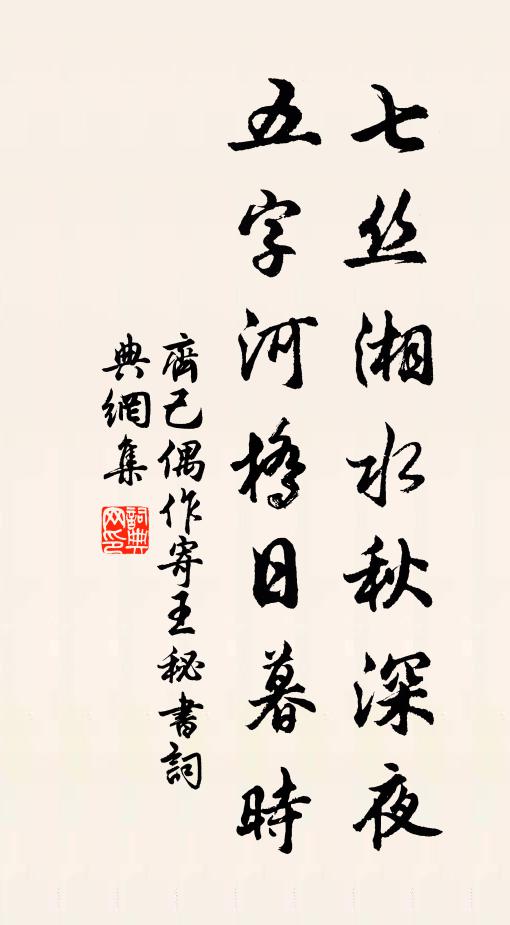 七丝湘水秋深夜
五字河橋日暮時
齊己偶作寄王秘書詞
典網集
詞典网印